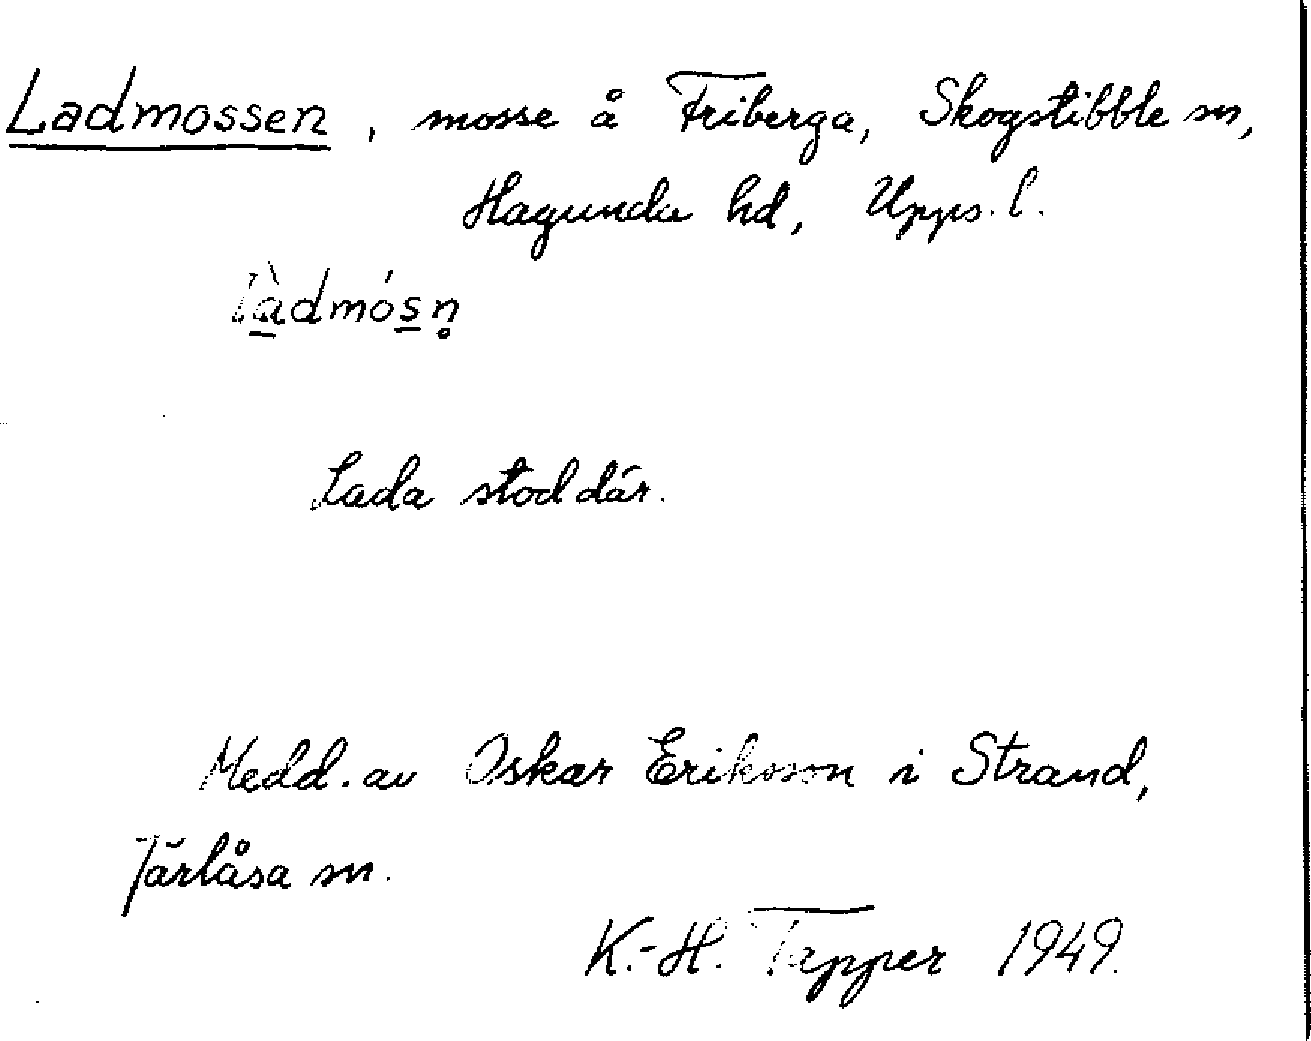 Ladmossen, mosse å Friberga, Skogstibble sn,
Hagunda hd, Upps. l.
là̱dmós̱n̥
Lada stod där.
Medd. av Oskar Eriksson i Strand,
Järlåsa sn.
K.-H. Tapper 1949.